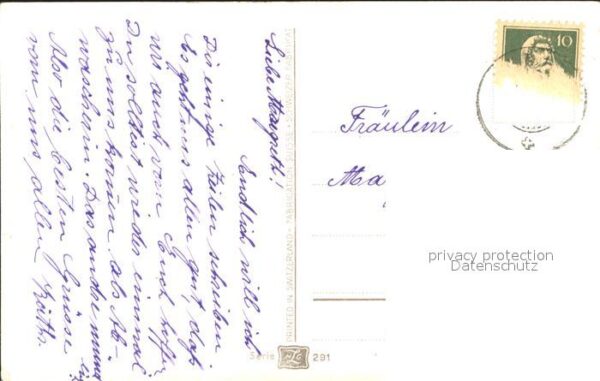 Liebe Margreth!
Endlich will ich
Dir einige Zeilen schreiben
Es geht uns allen gut, daß
wir auch von Euch hoffen
Du solltest wieder einmal
zu uns kommen als Ab-
wascherin. Das andre mündlich
Also die besten Grüsse
von uns allen
10
Fräulein
Ma
PRINTED IN SWITZERLAND - FABRICATION SUISSE - SCHWEIZER FABRIKAT
Serie 291
privacy protection
Datenschutz